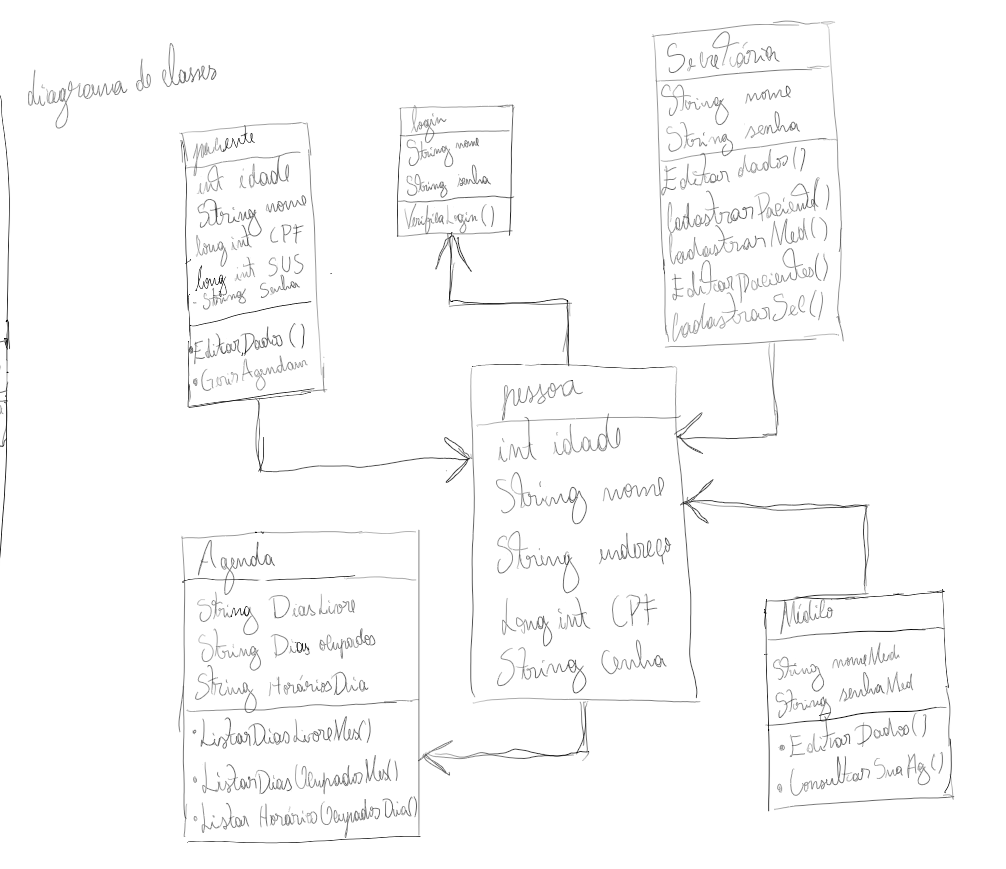 diagrama de classes
paciente
int idade
String nome
long int CPF
long int SUS
- String Senha
• Editar Dados ()
login
String nome
String senha
VerificaLogin ()
Secretária
String nome
String senha
Editar dados ()
CadastrarPaciente()
CadastrarMed()
Editar pacientes()
CadastrarSec()
pessoa
int idade
String nome
String endereço
Long int CPF
String Cenha
Agenda
String DiasLivre
String Dias ocupados
String HoráriosDia
• ListarDiasLivreMes()
• ListarDiasOcupadosMes()
• Listar HoráriosOcupadosDia()
Médico
String nomeMed
String senhaMed
• Editar Dados()
• ConsultarSuaAg()